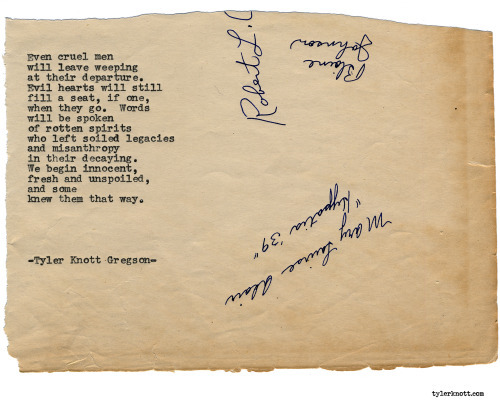 Even cruel men
will leave weeping
at their departure.
Evil hearts will still
fill a seat, if one,
when they go.  Words
will be spoken
of rotten spirits
who left soiled legacies
and misanthropy
in their decaying.
We begin innocent,
fresh and unspoiled,
and some
knew them that way.
-Tyler Knott Gregson-
Robert L.
Blaine
Johnson
Mary Louise
"Hypatia '39"
tylerknott.com